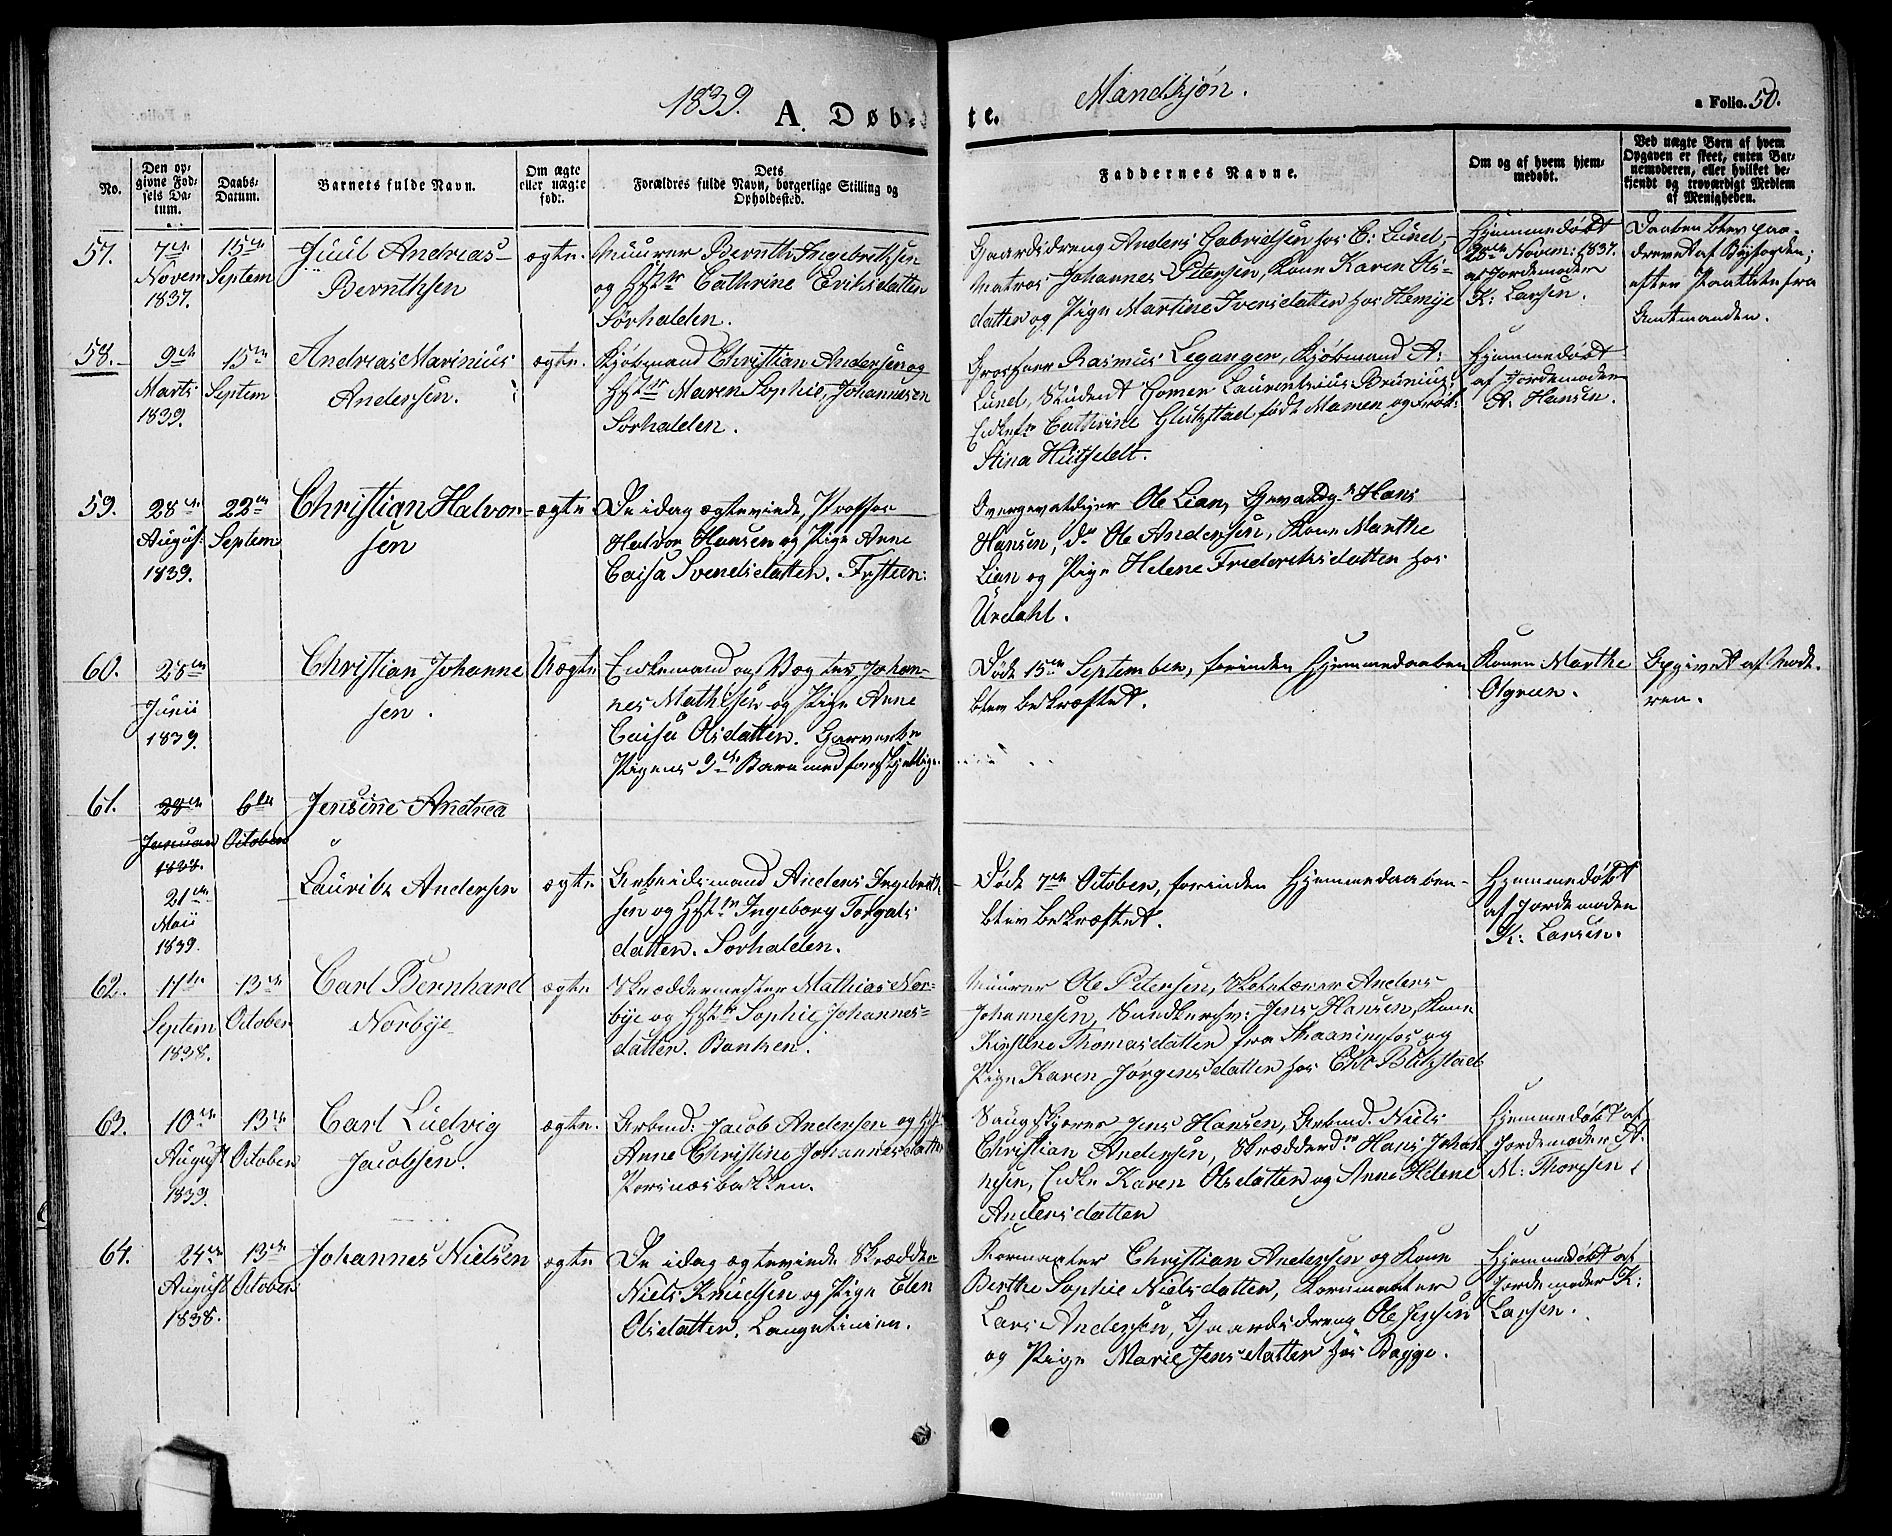 1839.
A. Døb-
te.
Mandkjøn.
a Folio. 50.
No.
Den op-
givne Fød-
sels Da-
tum.
Daabs-
Datum.
Barnets fulde Navn.
Om ægte
eller uægte
født.
Dets
Forældres fulde Navn, borgerlige Stilling og
Opholdssted.
Faddernes Navne.
Om og af hvem hjem-
medøbt.
Ved uægte Børn af hvem
Opgaven er skeet, enten Bar-
nemoderen, eller hvilket be-
kjendt og troværdigt Medlem
af Menigheden.
57.
7de
Novem
1837.
15de
Septem
Juul Andreas
Bernthsen
ægte.
Muurer Bernth Ingebrethsen
og Hstr Cathrine Eriksdatter
Sørhalden.
Gaardsdreng Anders Gabrielsen hos C: Lund,
Matros Johannes Petersen, Kone Karen Ols-
datter og Pige Martine Iversdatter hos
Hjemmedøbt
Novem: 1837.
af Jordemoder
K: Larsen.
Daaben blev paa-
drevet af Byfogden;
efter Paatale fra
Amtmanden.
58.
9de
Marts
1839.
15de
Septem
Andreas Marinius
Andersen.
ægte.
Kjøbmand Christian Andersen og
Hstr Maren Sophie Johannesen
Sørhalden.
Grosserer Rasmus Legangen, Kjøbmand A:
Lund, Student Homer Laurentsius Brunius,
Enkefr. Cathrine Glückstad født Mamen og Frøk:
Stina Huitfeldt.
Hjemmedøbt
af Jordemoder
A: Hansen.
59.
28de
August
1839.
22de
Septem
Christian Halvor-
sen
ægte
De idag ægteviede,
Halvor Hansen og Pige Anne
Caisa Svendsdatter.
Overgevaldiger Ole Lian, Gevaldgr Hans
Hansen, do Ole Andersen, Kone Marthe
Lian og Pige Helene Frederiksdatter hos
Urdahl.
60.
28de
Junii
1839.
Christian Johanne
sen.
Uægte
Enkemand og Vægter Johan-
nes Mathisen og Pige Anne
Caisa Olsdatter.
Pigens 3de Barn med forskjellige.
Døde 15de September, forinden Hjemmedaaben
blev bekræftet.
Konen Marthe
Olgreen.
Opgivet af Mode-
ren.
61.
28de
Januar
1838.
6te
October
Jensine Andrea
21de
Maii
1839.
Lauritz Andersen
ægte
Arbeidsmand Anders Ingebreth
sen og Hstr Ingeborg Torgals
datter. Sørhalden.
Døde 7de October, forinden Hjemmedaaben
blev bekræftet.
Hjemmedøbt
af Jordemoder
K: Larsen.
62.
11te
Septem
1838.
13de
October
Carl Bernhard
Norbye
ægte
Skræddermester Mathias Nor-
bye og Hstr Sophie Johannes-
datter. Banken.
Muurer Ole Petersen, Anders
Johannesen, Jens Hansen, Kone
Kirstine Thomasdatter fra Skaaningfos og
Pige Karen Jørgensdatter hos Chr
63.
10de
August
1839.
13de
October
Carl Ludvig
Jacobsen.
ægte.
Arbmd: Jacob Andersen og Hst
Anne Christine Johannesdatter
Porsnæsbakken.
Saugskjærer Jens Hansen, Arbmd. Niels
Christian Andersen, Skrædderd. Hans Johan
nesen, Enke Karen Olsdatter og Anne Helene
Andersdatter
Hjemmedøbt af
Jordemoder A.
M: Thoresen.
64.
24de
August
1838.
13de
October
Johannes Nielsen
ægte
De idag ægteviede Skrædder
Niels Knudsen og Pige Elen
Olsdatter. Langelinien.
Kornmaaler Christian Andersen og Kone
Berthe Sophie Nielsdatter, Kornmaaler
Lars Andersen, Gaardsdreng Ole Jepsen
og Pige Marie Jensdatter hos Bagge.
Hjemmedøbt af
Jordemoder K:
Larsen.